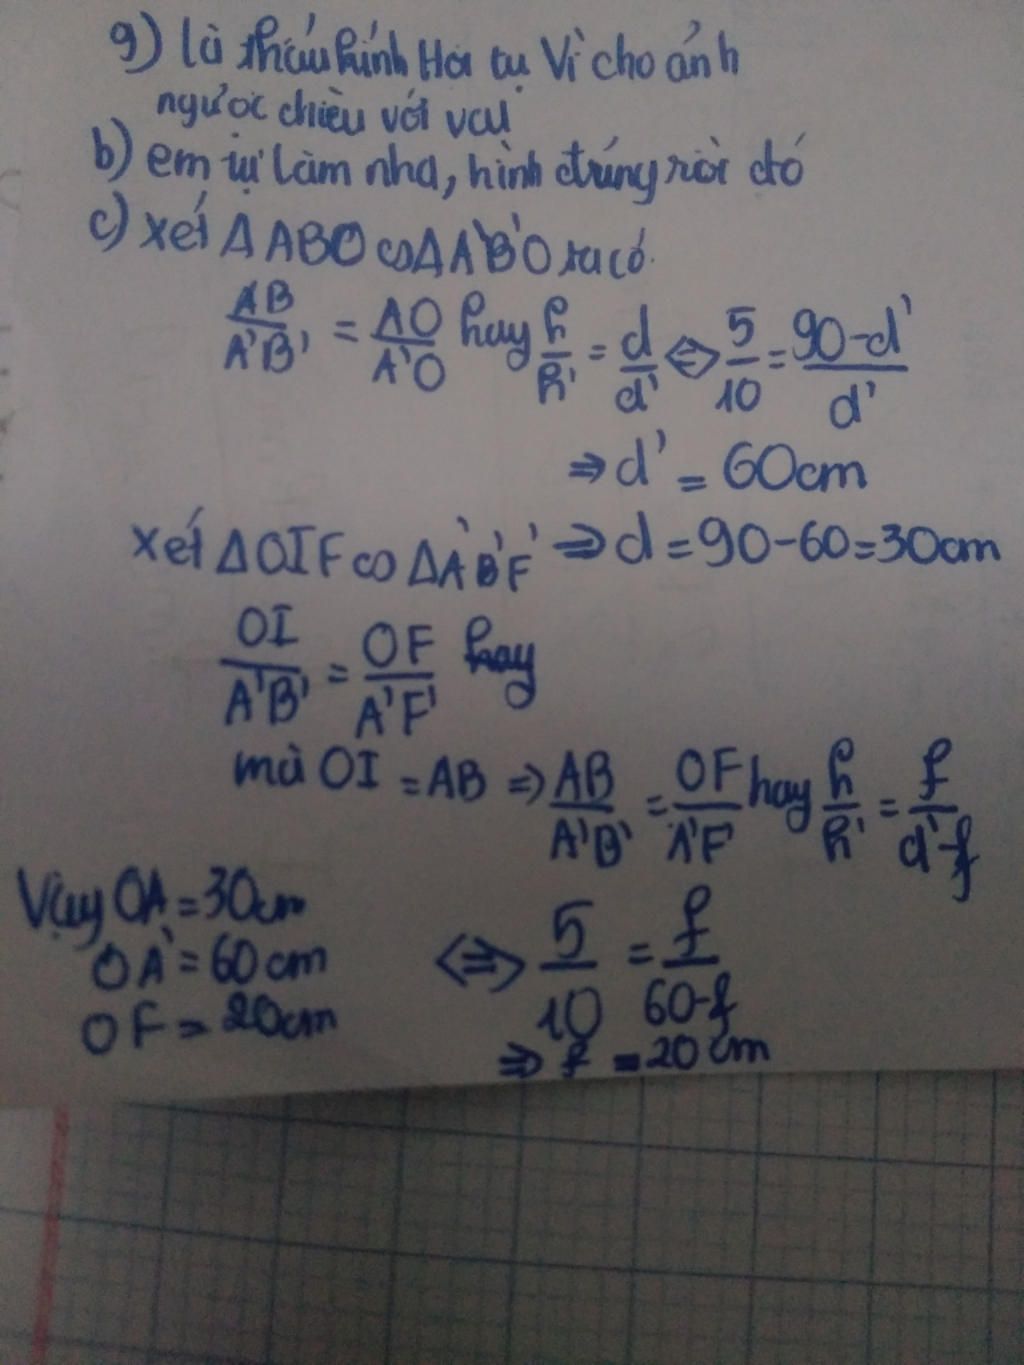 g) là thấu kính Hội tụ Vì cho ảnh
ngược chiều với vật
b) em tự làm nha, hình đúng rồi đó
c) xét Δ ABO ∽ Δ A'B'O ta có
AB/A'B' = AO/A'O hay h/h' = d/d' ⇔ 5/10 = 90-d'/d'
⇒ d' = 60cm
xét ΔOIF ∽ ΔA'B'F' ⇒ d = 90-60=30cm
OI/A'B' = OF/A'F' hay
mà OI = AB ⇒ AB/A'B' = OF/A'F' hay h/h' = f/d'-f
Vậy OA = 30cm
OA' = 60cm ⇔ 5/10 = f/60-f
OF = 20cm
⇒ f = 20cm